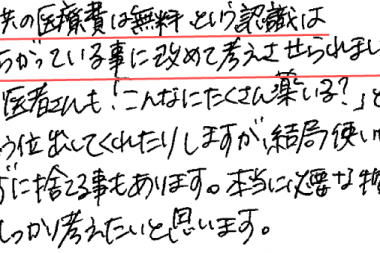 夫の医療費は無料という認識は
ちがっている事に改めて考えさせられまし
医者さんも「こんなにたくさん薬いる？」と
う位出してくれたりしますが、結局使い
ずに捨てる事もあります。本当に必要な物
しっかり考えたいと思います。